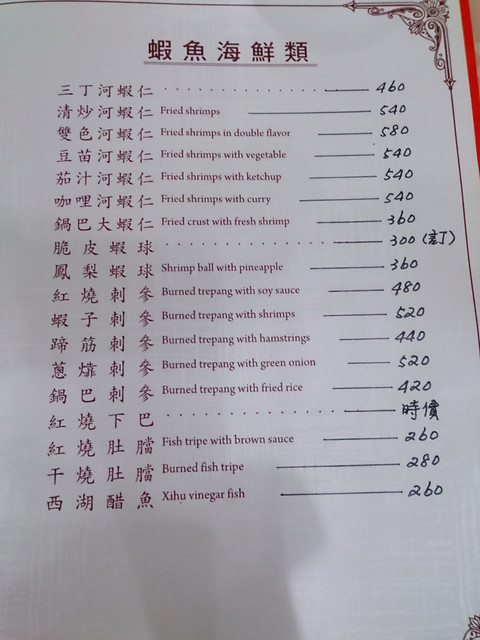 蝦魚海鮮類
三丁河蝦仁 460
清炒河蝦仁 Fried shrimps 540
雙色河蝦仁 Fried shrimps in double flavor 580
豆苗河蝦仁 Fried shrimps with vegetable 540
茄汁河蝦仁 Fried shrimps with ketchup 540
咖哩河蝦仁 Fried shrimps with curry 540
鍋巴大蝦仁 Fried crust with fresh shrimp 360
脆皮蝦球 300(訂)
鳳梨蝦球 Shrimp ball with pineapple 360
紅燒刺參 Burned trepang with soy sauce 480
蝦子刺參 Burned trepang with shrimps 520
蹄筋刺參 Burned trepang with hamstrings 440
蔥㸆刺參 Burned trepang with green onion 520
鍋巴刺參 Burned trepang with fried rice 420
紅燒下巴 時價
紅燒肚膛 Fish tripe with brown sauce 260
干燒肚膛 Burned fish tripe 280
西湖醋魚 Xihu vinegar fish 260